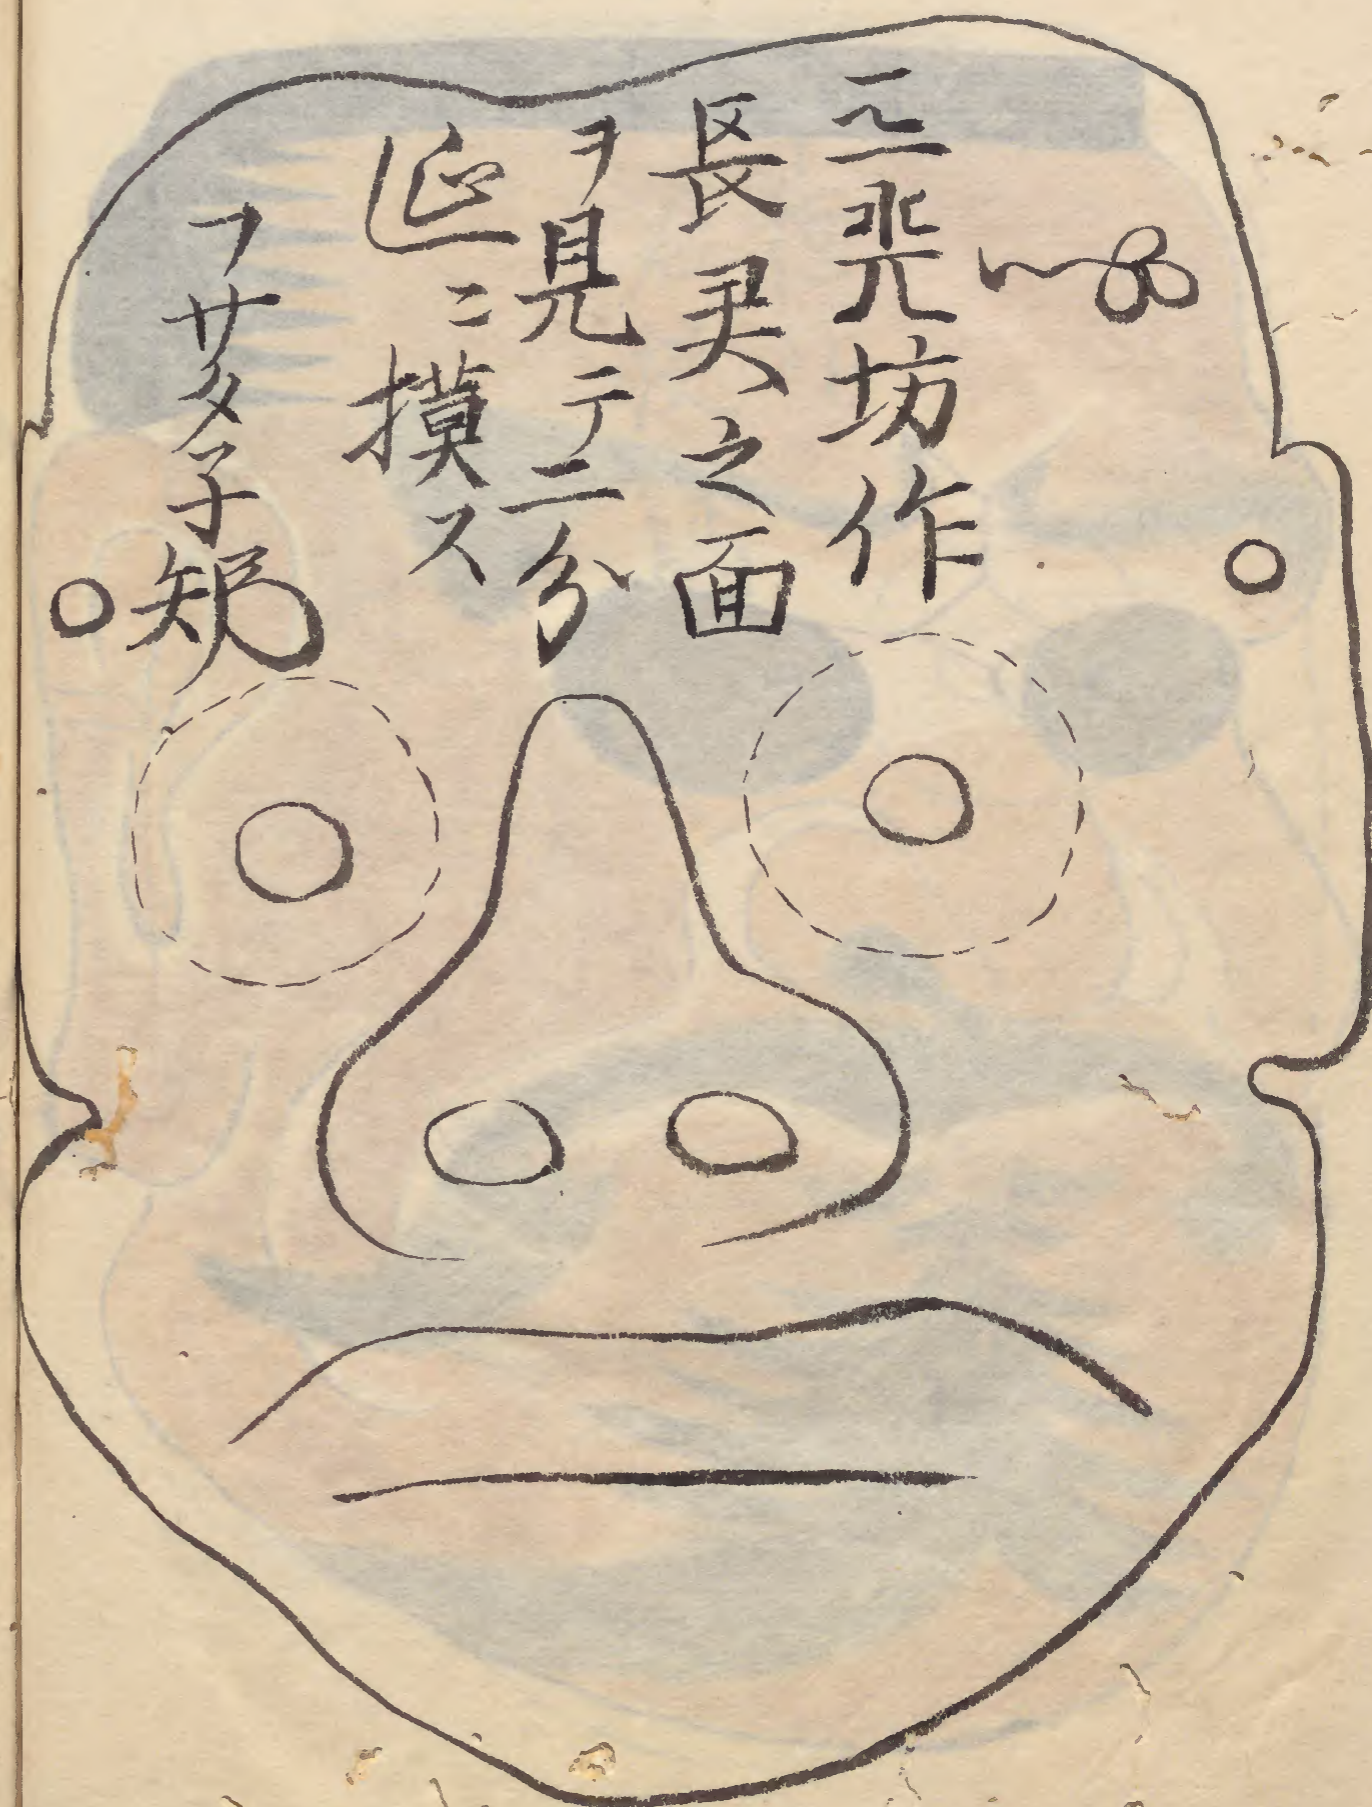 三光坊作
長灵之面
ヲ見テ二分
延ニ摸ス
フサタ子